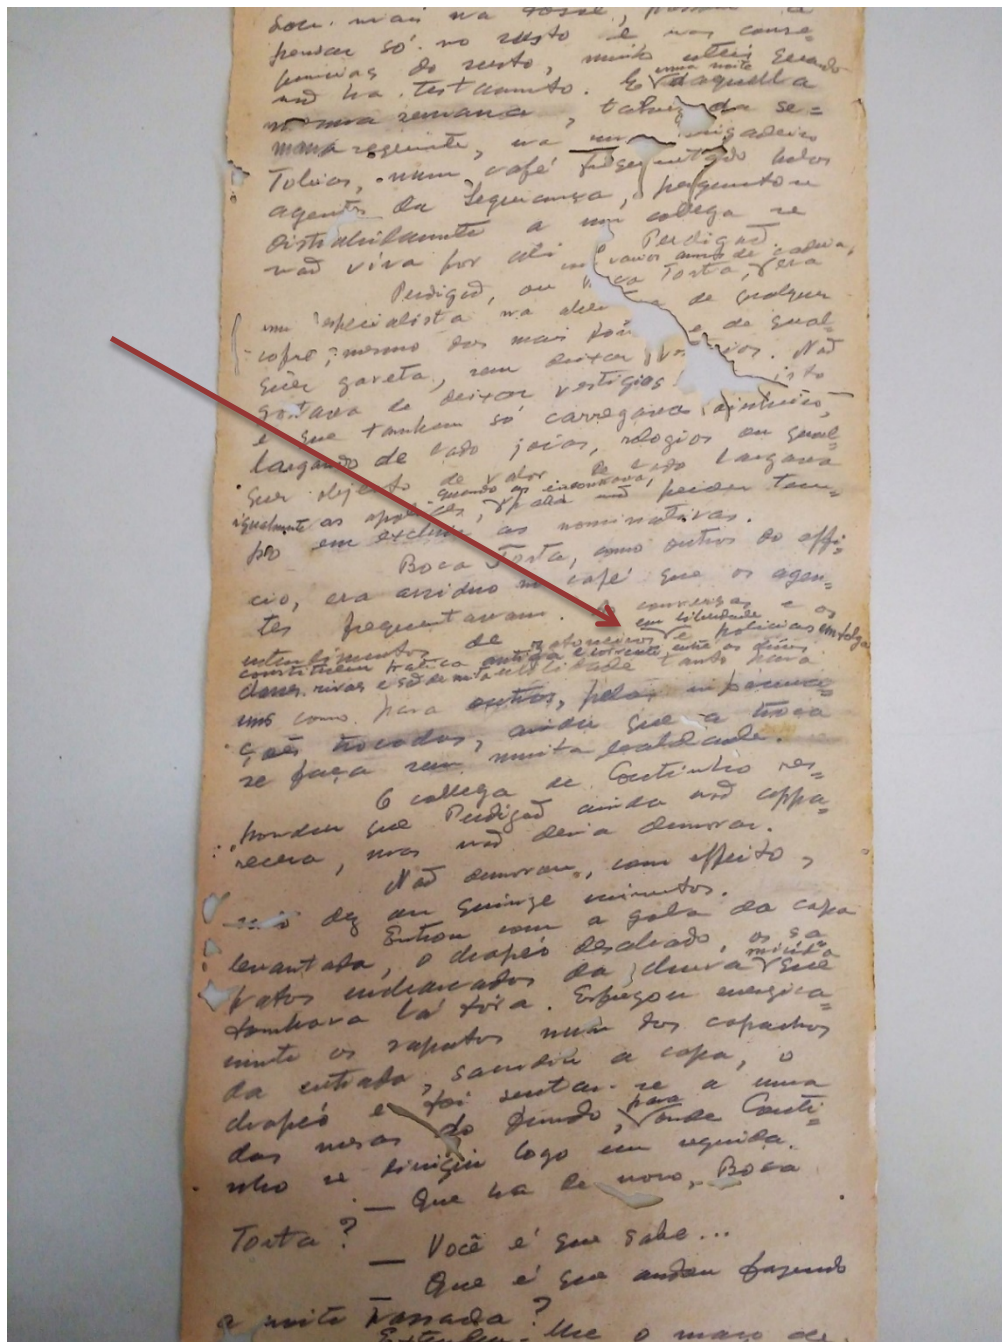 sou mais na tosse,
pensar só no susto e nas conse=
quencias do susto, muito uteis quando
não ha testamento. E uma noite daquella
mesma semana, talvez da se=
mana seguinte, na rua Brigadeiro
Tobias, num café frequentado pelos
agentes da Segurança, perguntou
distrahidamente a um collega se
não vira por ali Perdigão.
Perdigão, ou Boca Torta, varios annos de cadeia, era
um especialista na de qualquer
cofre, mesmo dos mais e de qual=
quer gaveta, sem deixar Não
gostava de deixar vestigios isto
é que tambem só carregava dinheiro,
largando de lado joias, relogios ou qual=
quer objecto de valor. De lado largava
igualmente as apolices, quando as encontrava, para não perder tem=
po em excluir as nominativas.
Boca Torta, como outros do offi=
cio, era assiduo no café que os agen=
tes frequentavam. As conversas e os
entendimentos de ratoneiros em liberdade e policias em folga
constituem pratica antiga e corrente entre as duas
classes rivaes e são de muita utilidade tanto para
uns como para outros, pelas informa=
ções trocadas, ainda que a troca
se faça sem muita lealdade.
O collega de Coutinho res=
pondeu que Perdigão ainda não appa=
recera, mas não devia demorar.
Não demorou, com effeito,
mais dez ou quinze minutos.
Entrou com a gola da capa
levantada, o chapeo desabado, os sa=
patos encharcados da chuva miuda que
tombava lá fóra. Esfregou energica=
mente os sapatos num dos capachos
da entrada, sacudiu a capa, o
chapeo e foi sentar-se a uma
das mesas do fundo, para onde Couti=
nho se dirigiu logo em seguida.
— Que ha de novo, Boca
Torta?
— Você é que sabe...
Que é que andou fazendo
a noite passada?
Extendeu-lhe o maço de